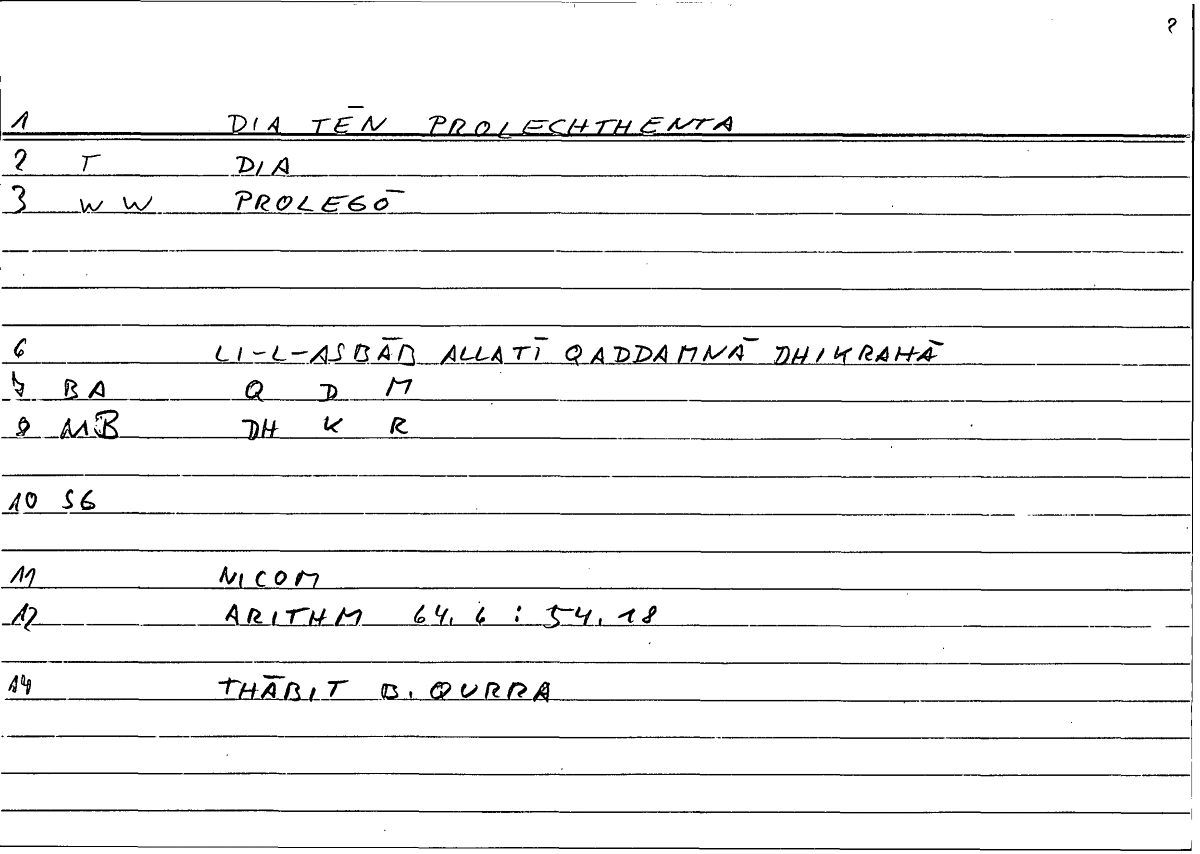 2
1 DIA TĒN PROLECHTHENTA
2 T DIA
3 W W PROLEGŌ
6 LI-L-ASBĀB ALLATĪ QADDAMNĀ DHIKRAHĀ
7 BA Q D M
8 MB DH K R
10 SG
11 NICOM
12 ARITHM 64.6 : 54.18
14 THĀBIT B. QURRA